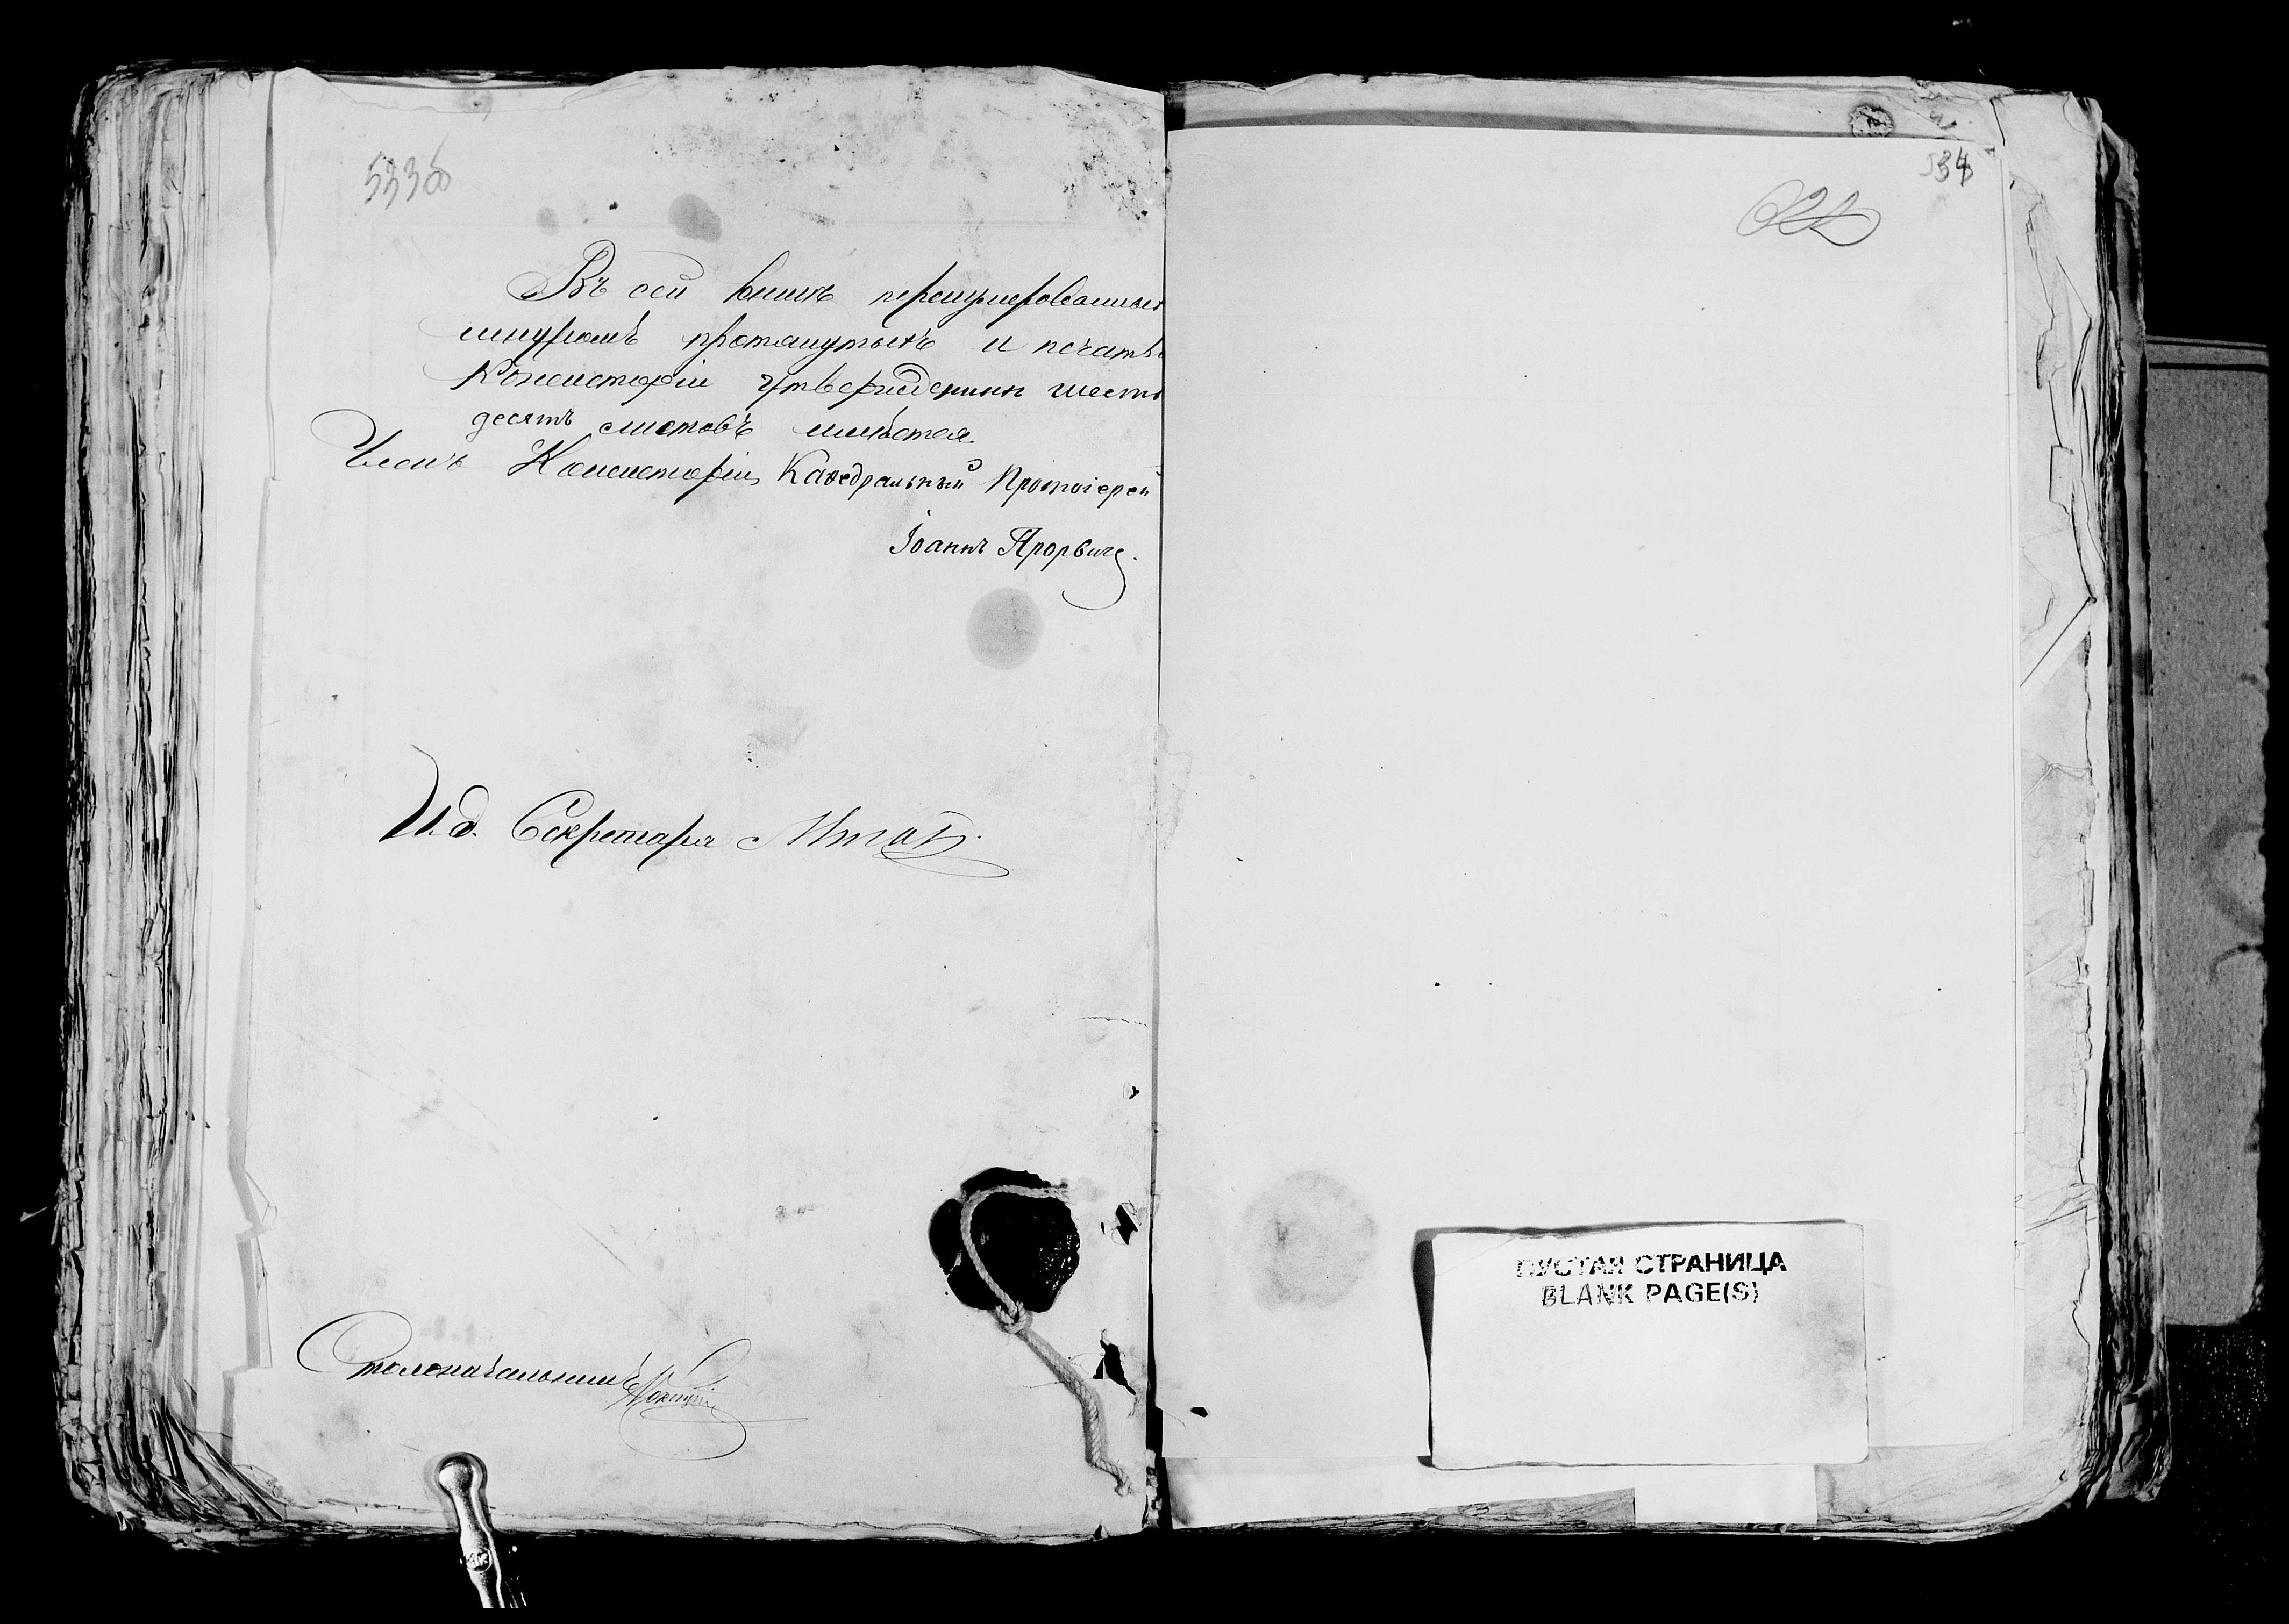 533об
Въ сей книгѣ перенумерованныхъ
шнуромъ протянутыхъ и печатью
Консисторіи утвержденныхъ шесть
десятъ листовъ имѣется.
Членъ Консисторіи, Каѳедральный Протоіерей
Іоаннъ
И. д. Секретаря
Столоначальникъ
534
ПУСТАЯ СТРАНИЦА
BLANK PAGE(S)